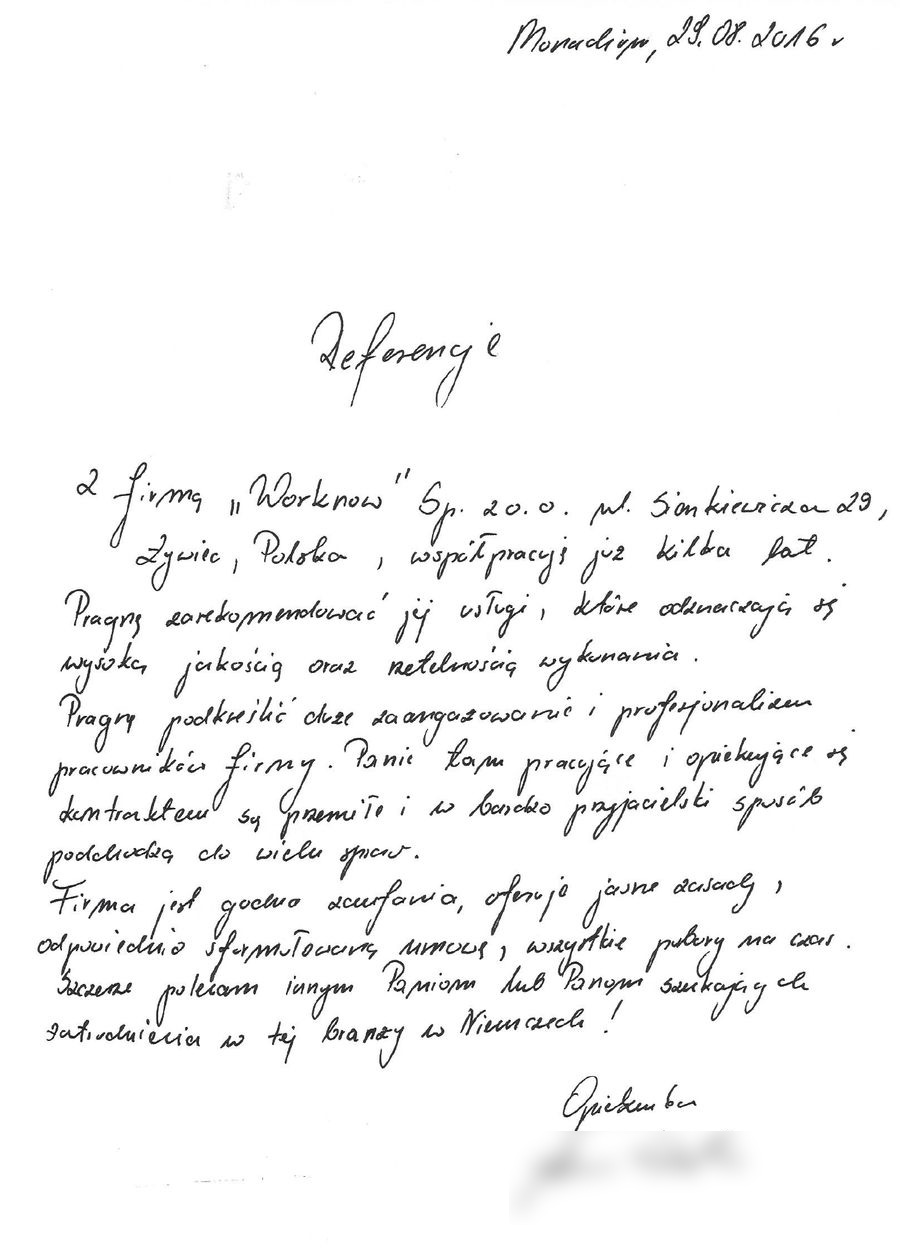 Monachium, 29.08.2016 r
Referencje
Z firmą „Worknow" Sp. zo.o. ul. Sienkiewicza 29,
Żywiec, Polska, współpracuję już kilka lat.
Pragnę zarekomendować jej usługi, które odznaczają się
wysoką jakością oraz rzetelnością wykonania.
Pragnę podkreślić duże zaangażowanie i profesjonalizm
pracowników firmy. Panie tam pracujące i opiekujące się
kontraktem są przemiłe i w bardzo przyjacielski sposób
podchodzą do wielu spraw.
Firma jest godna zaufania, oferuje jasne zasady,
odpowiednio sformułowaną umowę, wszystkie pobory na czas.
Szczerze polecam innym Paniom lub Panom szukających
zatrudnienia w tej branży w Niemczech!
Opiekunka